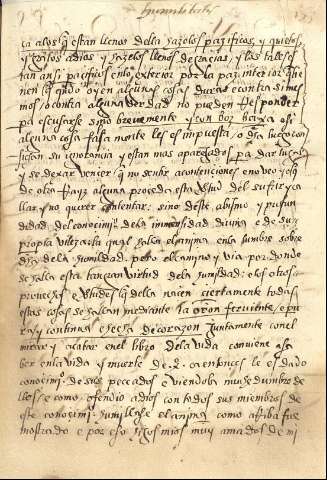 humilitat
ca a los q estan llenos della hazelos pazificos, y quietos,
y gratos a dios y hazelos llenos de gracias, y los tales es
tan ansi pacificos en lo exterior por la paz interior que tie
nen q quãdo oyen algunas cosas duras contra si mes
mos, o contra alguna verdad no pueden responder
pa escusarse sino brevemente y con boz baxa o si
alguna cosa falsa mente les es impuesta, o dizẽ luego con
fiesan su ignorancia y estan mas aparejados pa dar lugar
y se dexar vencer, que no seguir a contenciones e no veo yo q
de otra rayz alguna proceda esta virtud del sufrir y ca
llar y no querer contentar: sino deste abismo y profun
didad del conocimiº de la immensidad divina e de su
propia vileza en la qual se halla el anima en la lumbre sobre
dicha de la humildad. pero el camino y via por donde
se halla esta tan gran virtud de la humildad: e los otros
provechos e virtudes q della nacen ciertamente todas
estas cosas se hallan mediante la orõn ferviente, e pu
ra, y continua e hecha de corazon Juntamente con el
mirar y acatar en el libro de la vida conviene a sa
ber en la vida y muerte de
conocimº de sus pecados e viendo la muchedumbre de
llos e como ofendio a dios con todos sus miembros de
este conocimiº humillase el anima como arriba fue
mostrado e por eso hijos mios muy amados de mi